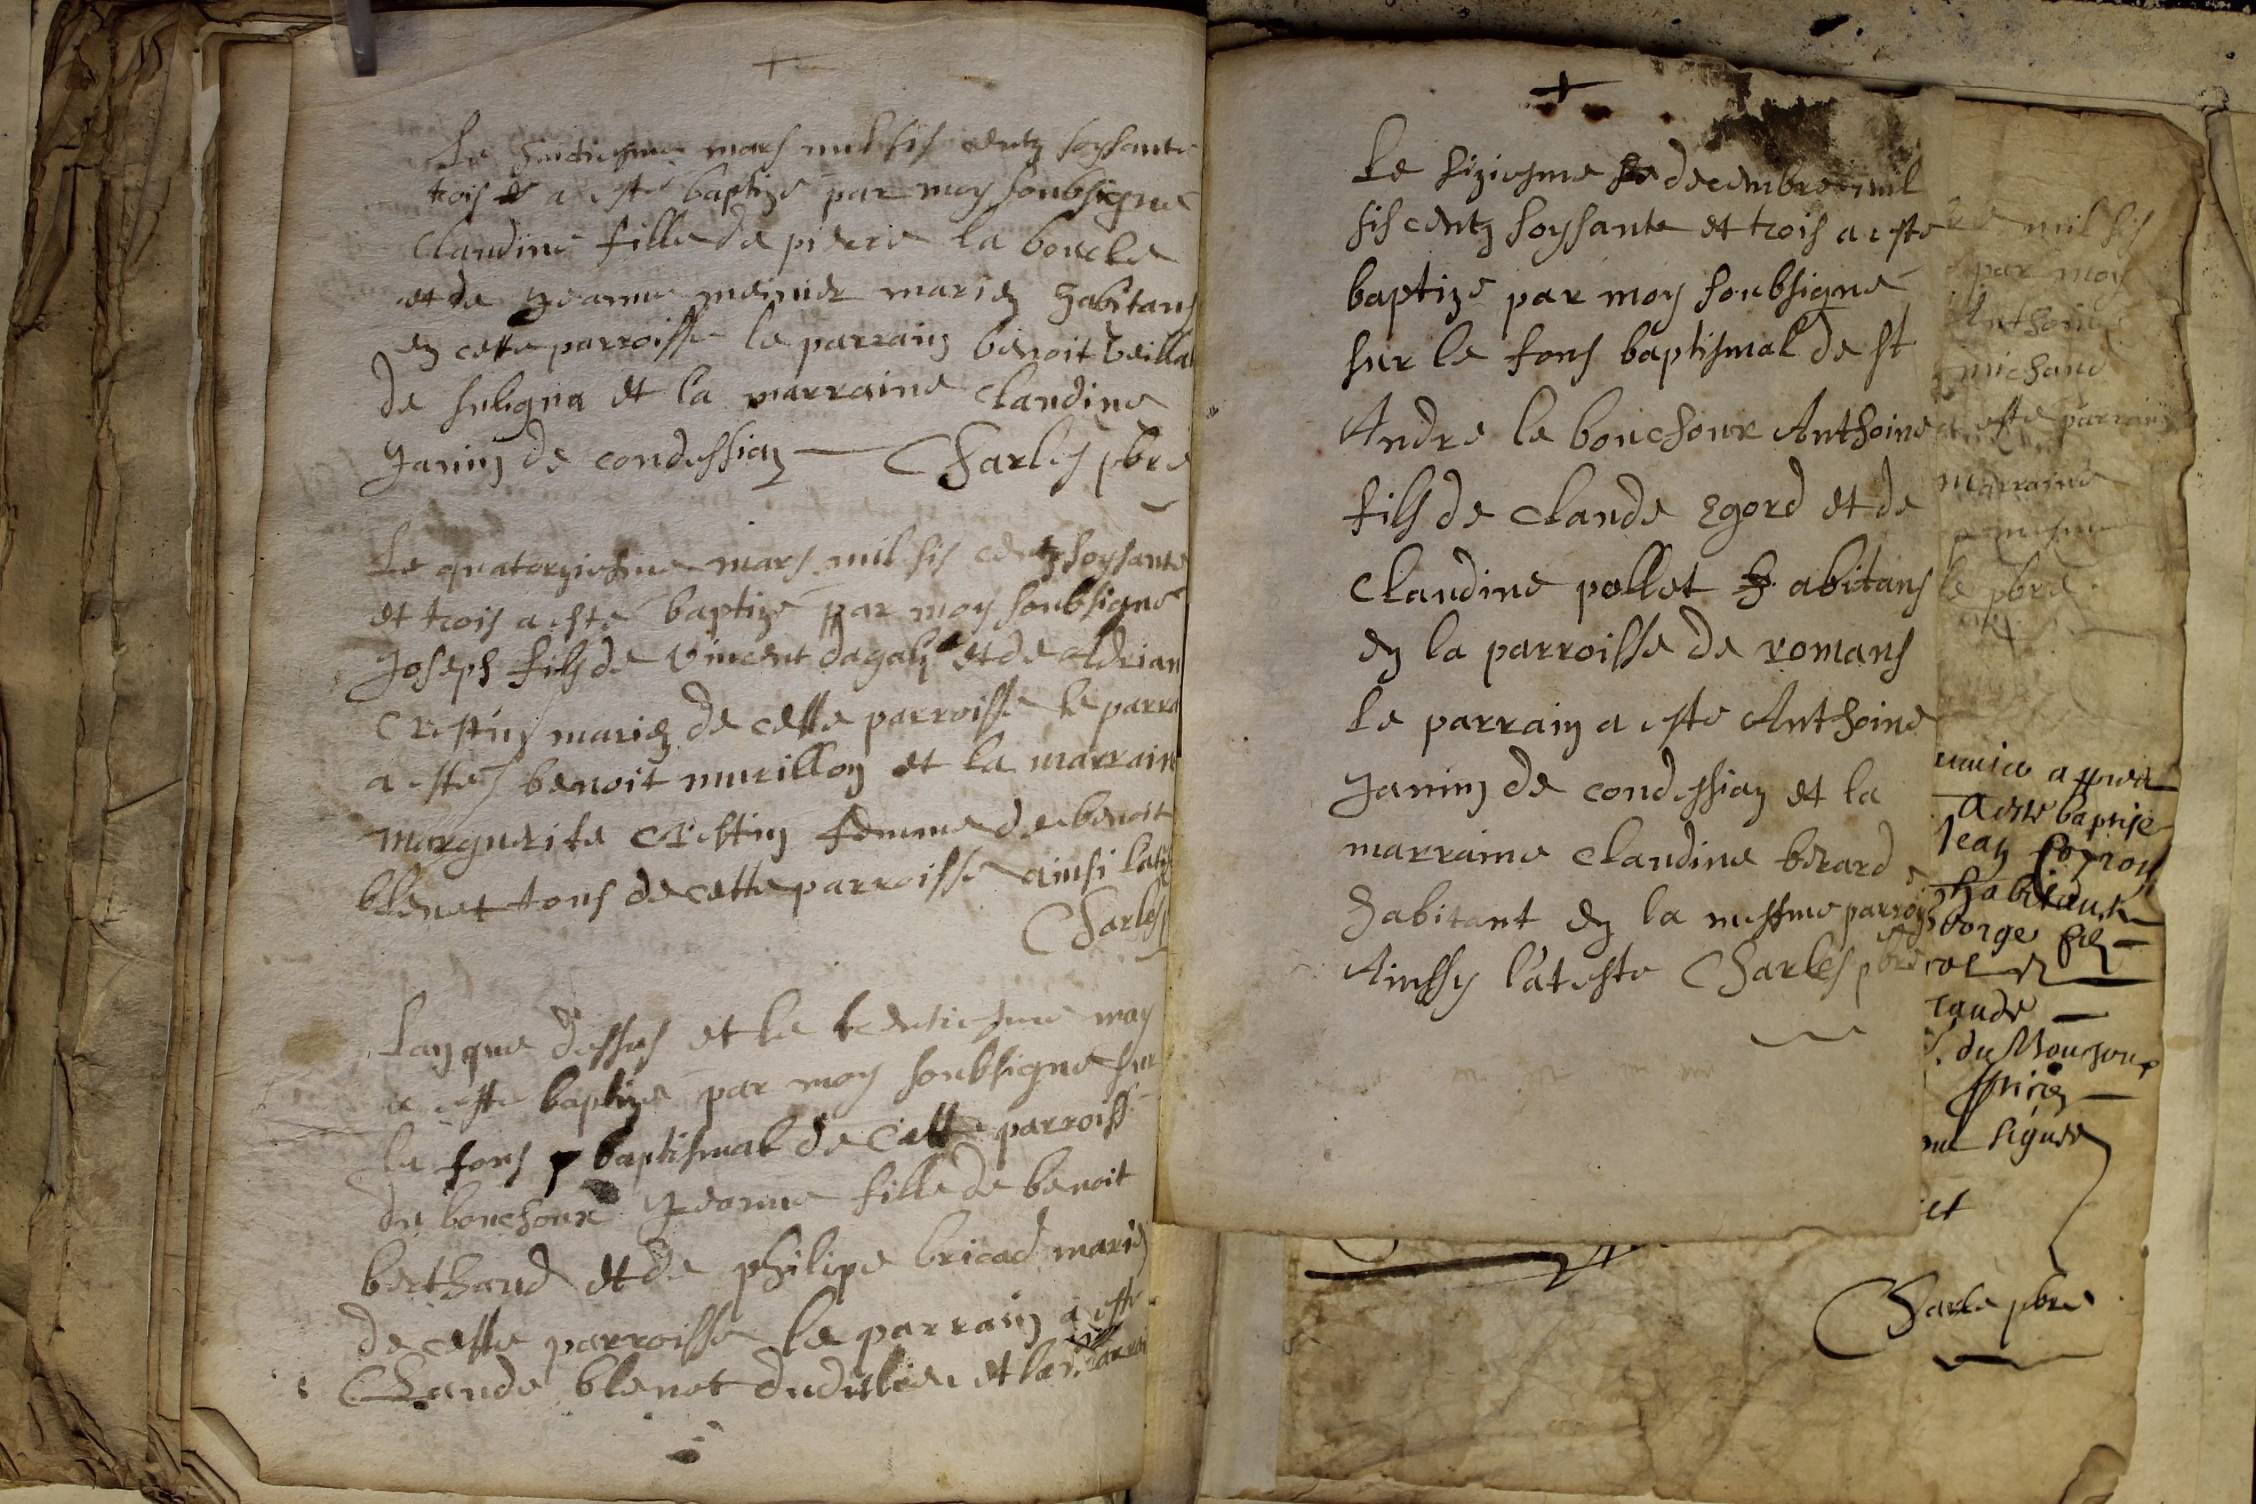 Le huictiesme mars mil sis centz soysante
trois et a esté baptize par moy soubsigne
Claudine fille de pierre la boucle
et de Jeanne meinier mariez habitans
en cette parroisse le parrain benoit veilla
de suligna et la marraine Claudine
Janin de condessiaz Charles pbre
Le quatorziesme mars mil sis centz soysante
et trois a esté baptize par moy soubsigné
Joseph fils de Vincent dagalz et de Adrian
Crestin mariez de cette parroisse le parra
a esté benoit murillon et la marrain
marguerite Crestin femme de benoit
blenet tous de cette parroisse ainsi lat
Charles
Lan que dessus et le may
a esté baptize par moy soubsigne sur
le fons baptismal de cette parroiss
du bouchoux Jeanne fille de benoit
berthaud et de philipe bricad mariez
de cette parroisse le parrain a esté
Claude blenet et la marrai
Le siziesme decembre mil
sis centz soysante et trois a esté
baptize par moy soubsigne
sur le fons baptismal de st
Andre le bouchoux Anthoine
fils de Claude Egord et de
Claudine pollet habitans
en la parroisse de romans
Le parrain a este Anthoine
Janin de condessiaz et la
marraine Claudine berard
habitant en la mesme parroi
Ainssy l'ateste Charles pbre
mil sis
par moy
Anthoine
michaud
esté parrain
marraine
pbre
a esté baptise
Jean
habitant
george
du Bouchoux
signer
et
Charle pbre